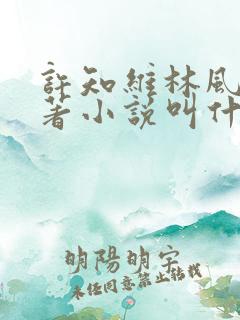 許知維林風
著小說叫什
明陽明宇
未任同意禁止結找